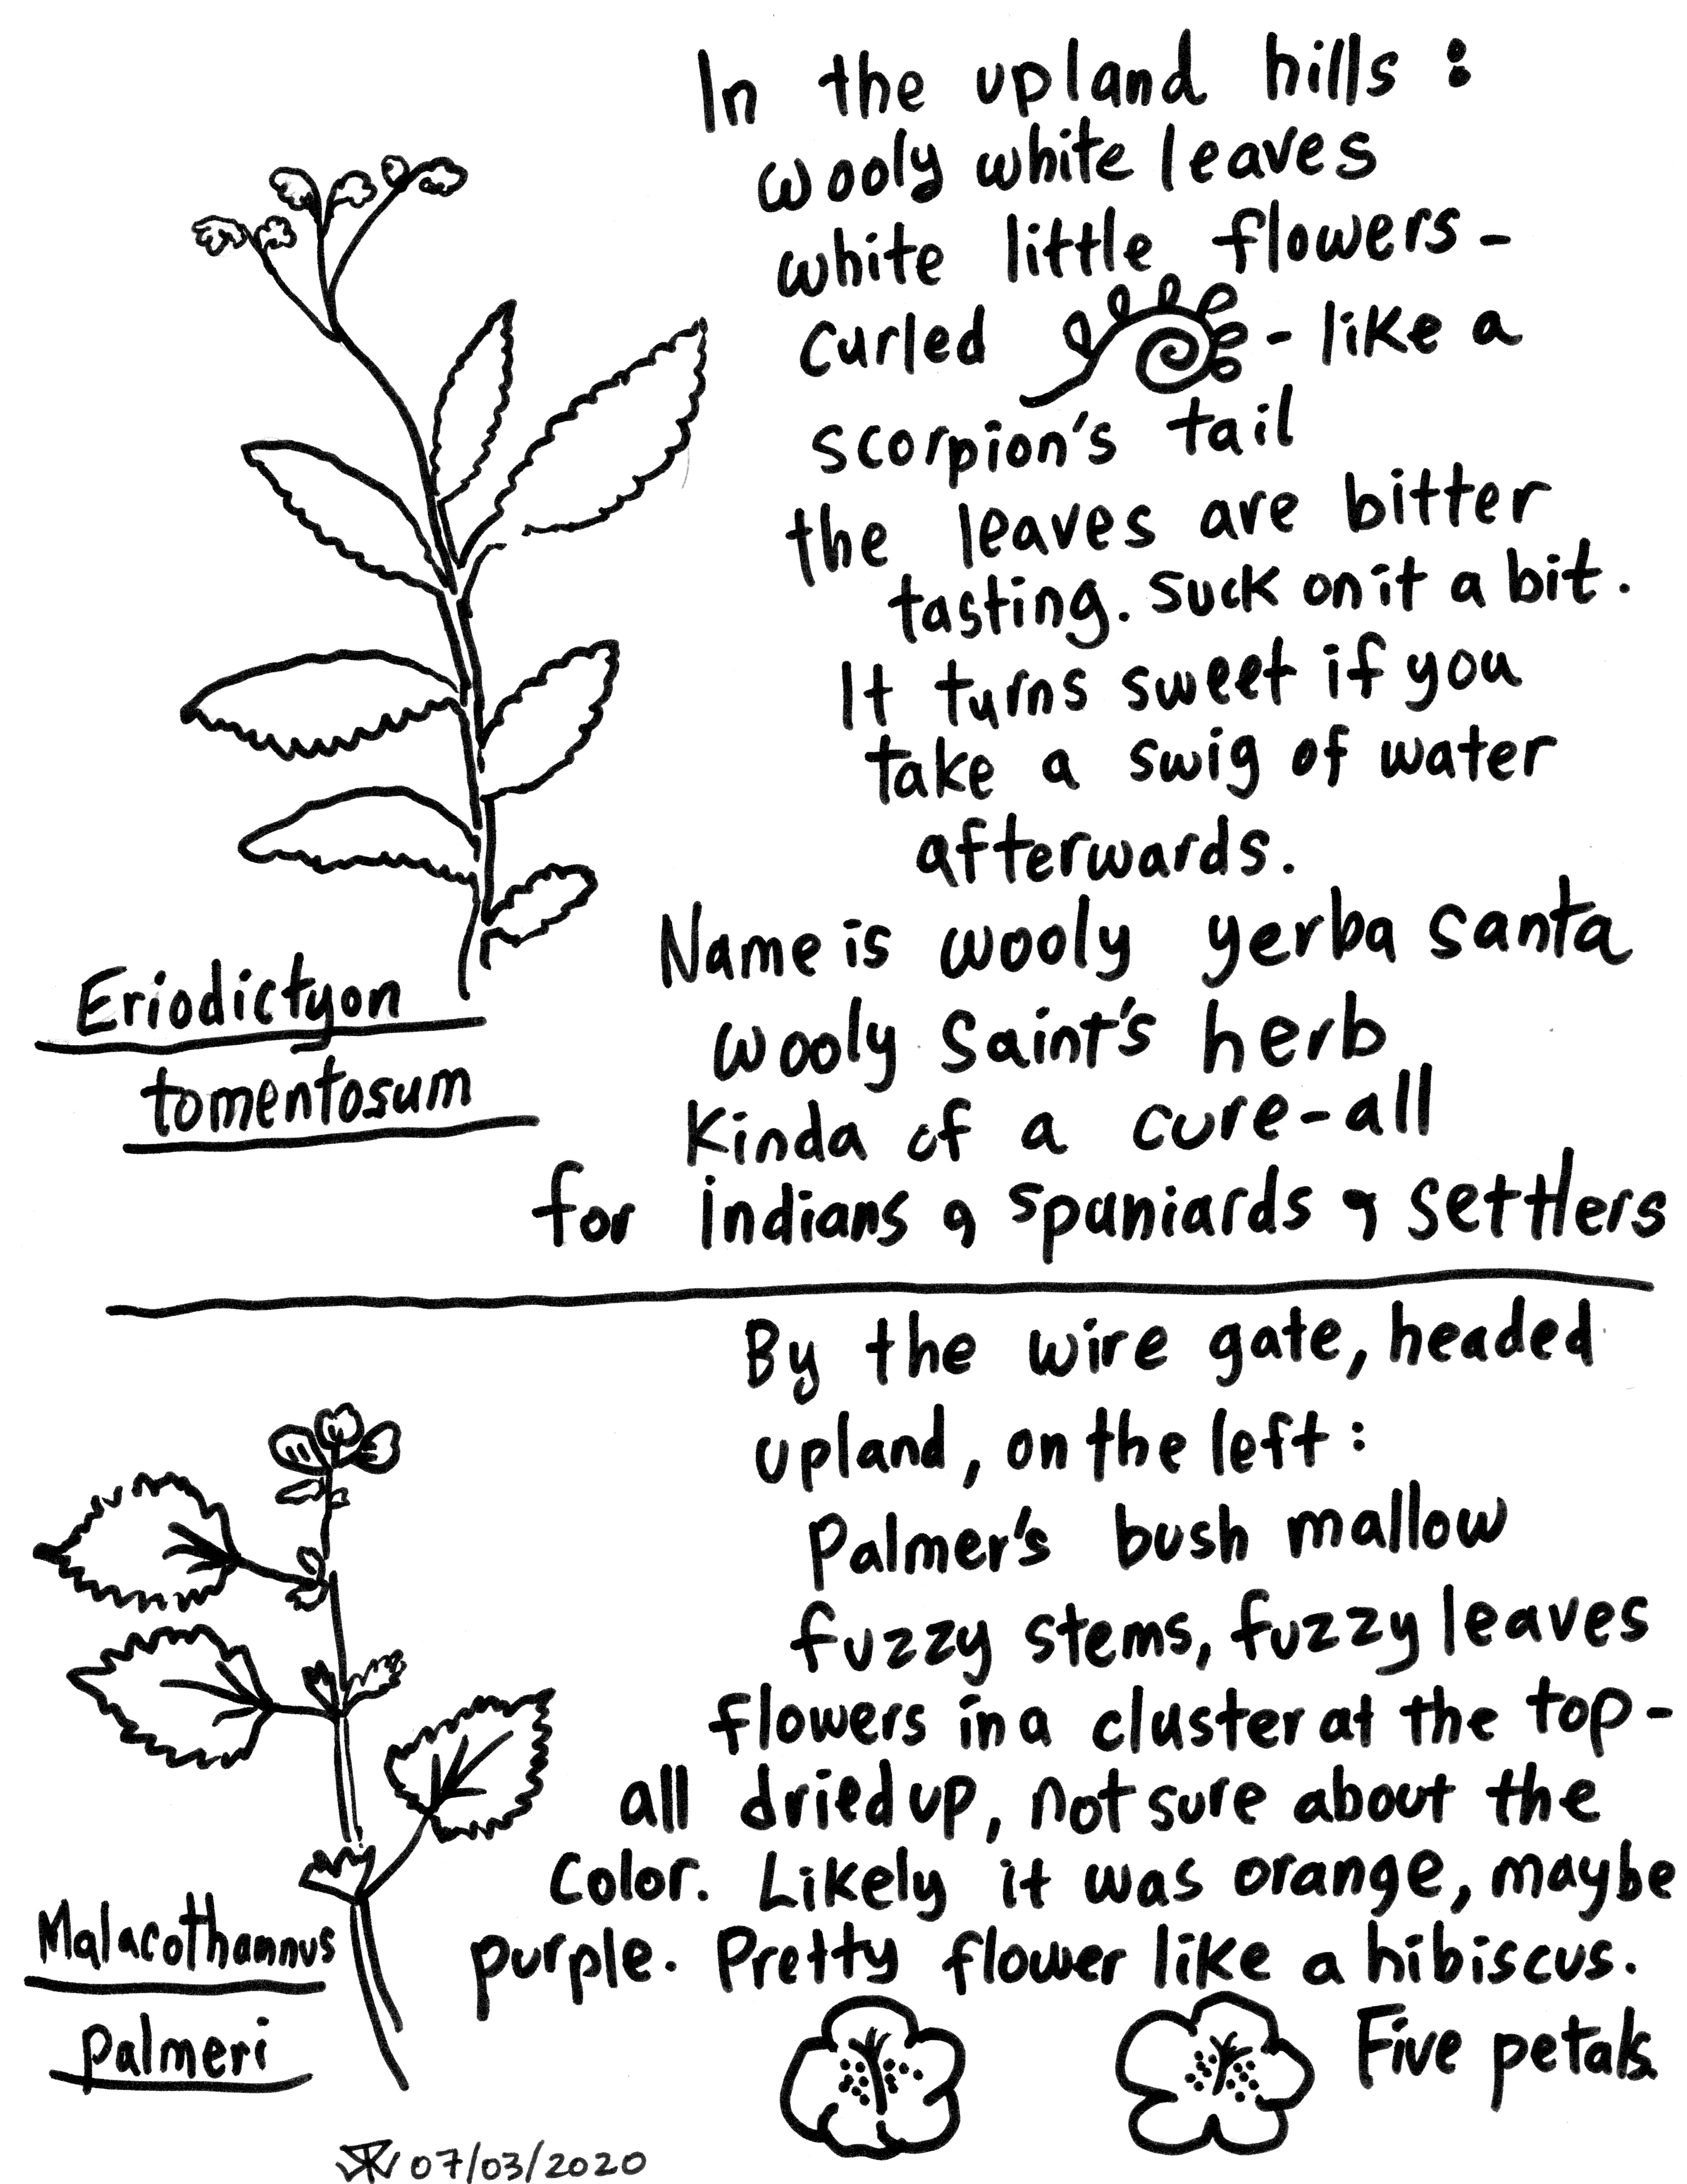 In the upland hills :
wooly white leaves
white little flowers -
curled - like a
scorpion's tail
the leaves are bitter
tasting. Suck on it a bit.
It turns sweet if you
take a swig of water
afterwards.
Name is wooly yerba santa
wooly saint's herb
Kinda of a cure-all
for indians & spaniards & settlers
Eriodictyon
tomentosum
By the wire gate, headed
upland, on the left :
Palmer's bush mallow
fuzzy stems, fuzzy leaves
flowers in a cluster at the top -
all dried up, not sure about the
color. Likely it was orange, maybe
purple. Pretty flower like a hibiscus.
Five petals.
Malacothamnus
palmeri
07/03/2020